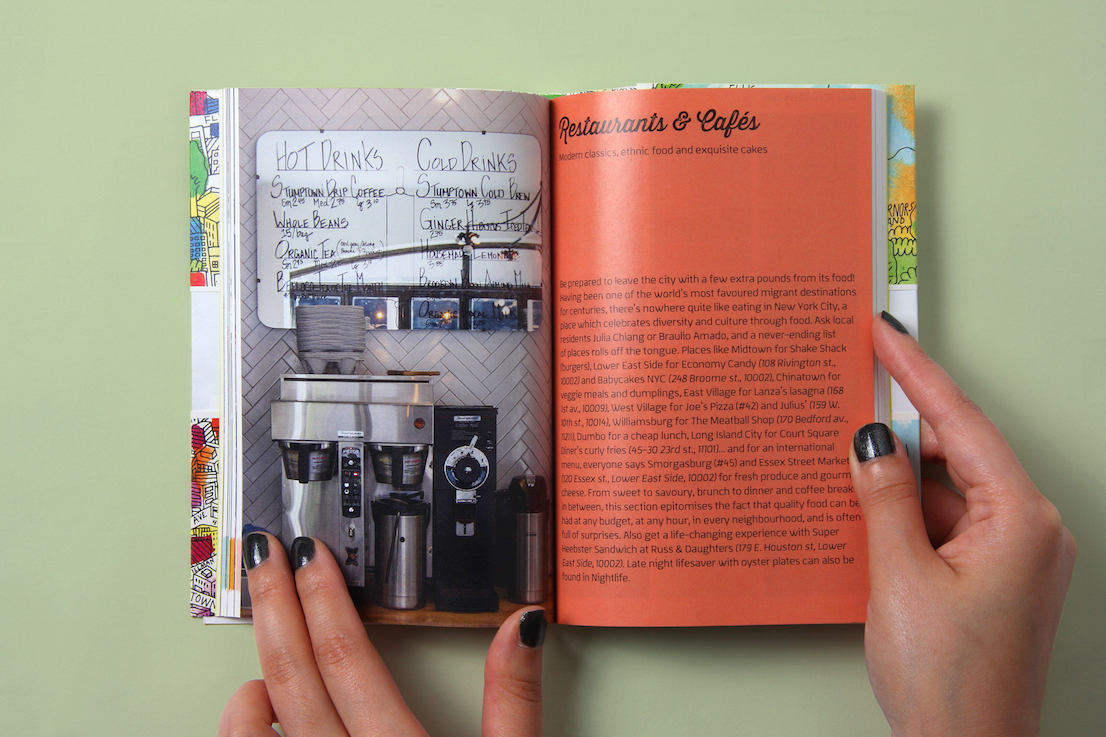 HOT DRINKS
STUMPTOWN DRIP COFFEE
Sm 2.45 Med 2.75 Lg 3.10
WHOLE BEANS
15/bag
ORGANIC TEA
COLD DRINKS
STUMPTOWN COLD BREW
Sm 3.75 Lg
GINGER HIBISCUS ICED TEA
HOUSEMADE LEMONADE
Restaurants & Cafés
Modern classics, ethnic food and exquisite cakes
Be prepared to leave the city with a few extra pounds from its food!
Having been one of the world's most favoured migrant destinations
for centuries, there's nowhere quite like eating in New York City, a
place which celebrates diversity and culture through food. Ask local
residents Julia Chiang or Braulio Amado, and a never-ending list
of places rolls off the tongue. Places like Midtown for Shake Shack
(burgers), Lower East Side for Economy Candy (108 Rivington st.,
10002) and Babycakes NYC (248 Broome st., 10002), Chinatown for
veggie meals and dumplings, East Village for Lanza's lasagna (168
1st av., 10009), West Village for Joe's Pizza (#42) and Julius' (159 W.
10th st., 10014), Williamsburg for The Meatball Shop (170 Bedford av.,
11211), Dumbo for a cheap lunch, Long Island City for Court Square
Diner's curly fries (45-30 23rd st., 11101)... and for an international
menu, everyone says Smorgasburg (#45) and Essex Street Market
(120 Essex st., Lower East Side, 10002) for fresh produce and gourmet
cheese. From sweet to savoury, brunch to dinner and coffee break
in between, this section epitomises the fact that quality food can be
had at any budget, at any hour, in every neighbourhood, and is often
full of surprises. Also get a life-changing experience with Super
Heebster Sandwich at Russ & Daughters (179 E. Houston st, Lower
East Side, 10002). Late night lifesaver with oyster plates can also be
found in Nightlife.